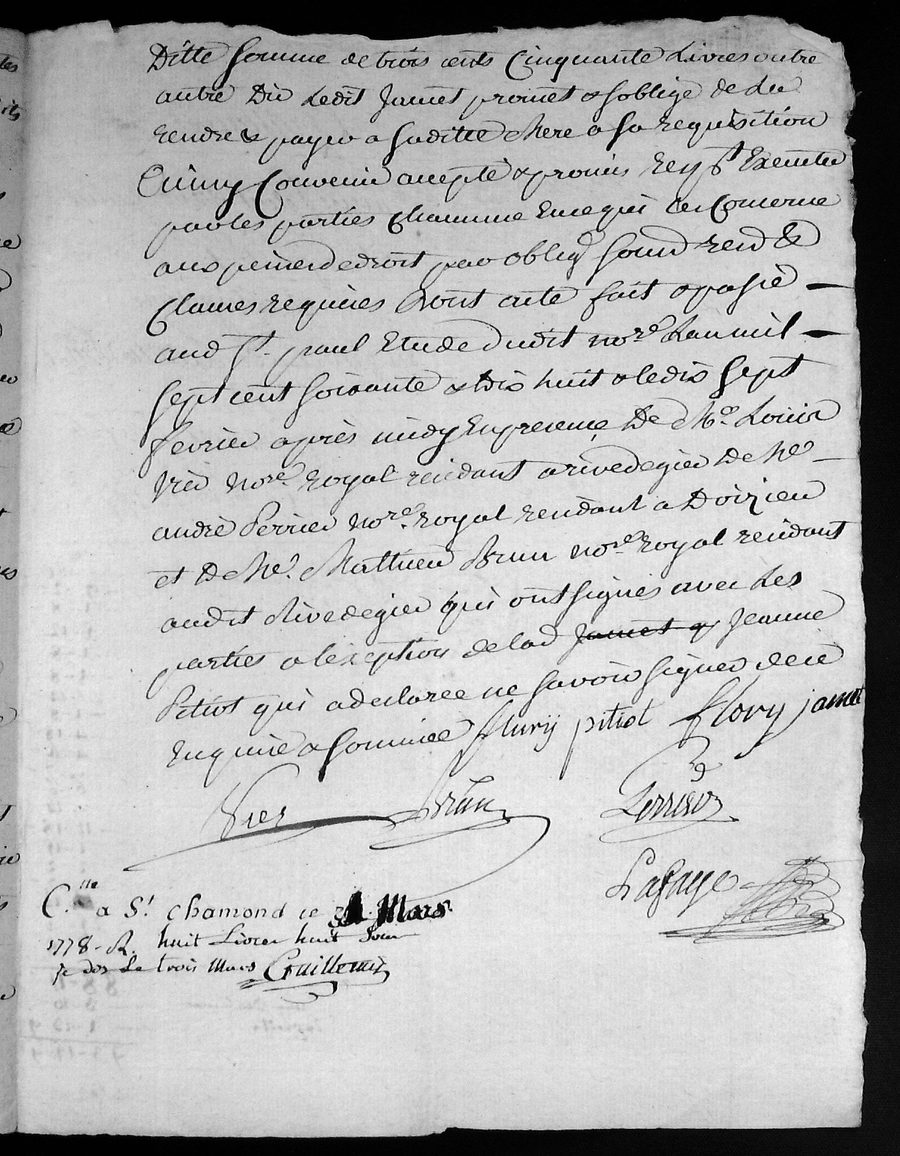 Ditte somme de trois cents Cinquante Livres outre
autre Dit Ledit Jamet promet & soblige de La
rendre & payer a saditte Mere a sa requisition
Ainsy Convenu accepté & promis Executer
par les parties Chaqunne En ce qui Les Concerne
aux peines de droit par oblig.
Clauses requises Dont acte fait & passé —
aud St. paul Etude dudit nore. Lan mil —
sept cent soixante & dix huit & le dix sept
fevrier après midy En presence De Me. Louis
Vier Nore. royal residant a rivedegier De Me —
andré Perrier nore. royal residant a Doizieu
et De Me. Mathieu Brun nore. royal residant
audit Rivedegier qui ont signés avec Les
parties a lexception de lad Jamet & Jeanne
Pitiot qui a declarée ne savoir signer de ce
Enquise & sommée flurij pitiot flory jamet
Vier Brun Perrier
Lafaye
C.lle a St. chamond ce Mars
1778. R. huit Livres huit Sous
Le trois Mars Guillemin